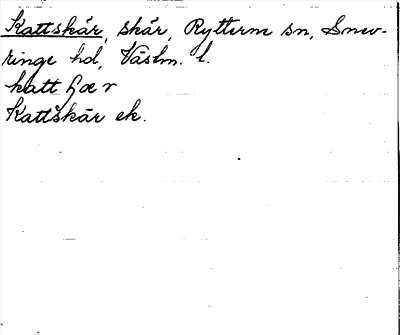 Kattskär, skär, Rytterne sn, Snev-
ringe hd, Västm. l.
katt
Kattskär ek.